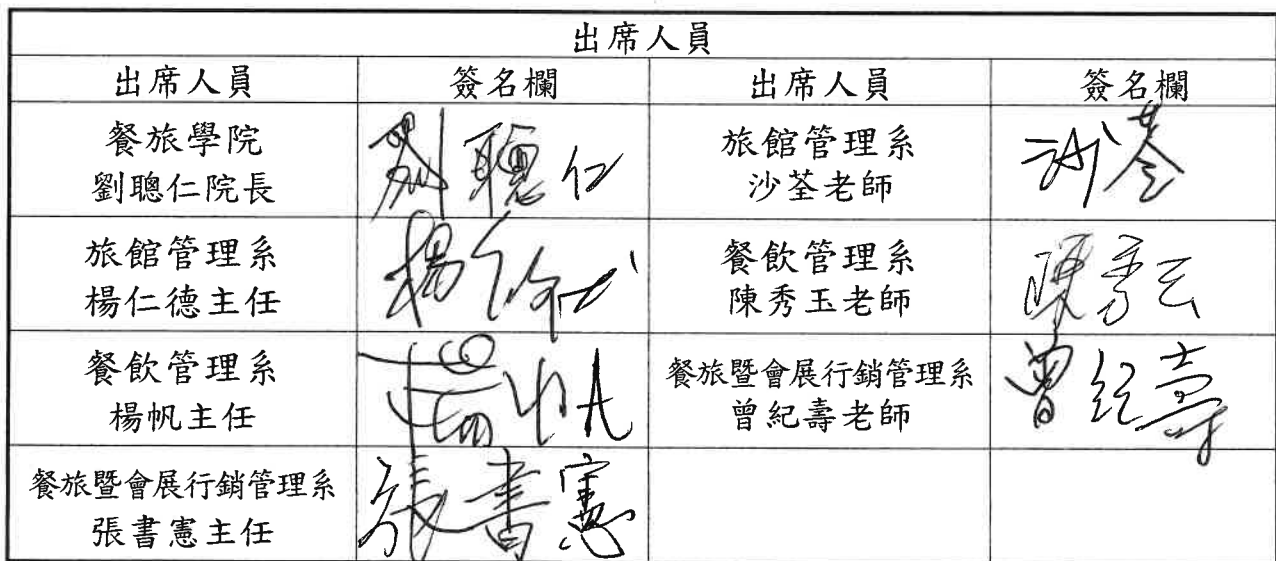 出席人員
出席人員 簽名欄 出席人員 簽名欄
餐旅學院
劉聰仁院長
劉聰仁
旅館管理系
沙荃老師
沙荃
旅館管理系
楊仁德主任
楊仁德
餐飲管理系
陳秀玉老師
陳秀玉
餐飲管理系
楊帆主任
楊帆
餐旅暨會展行銷管理系
曾紀壽老師
曾紀壽
餐旅暨會展行銷管理系
張書憲主任
張書憲